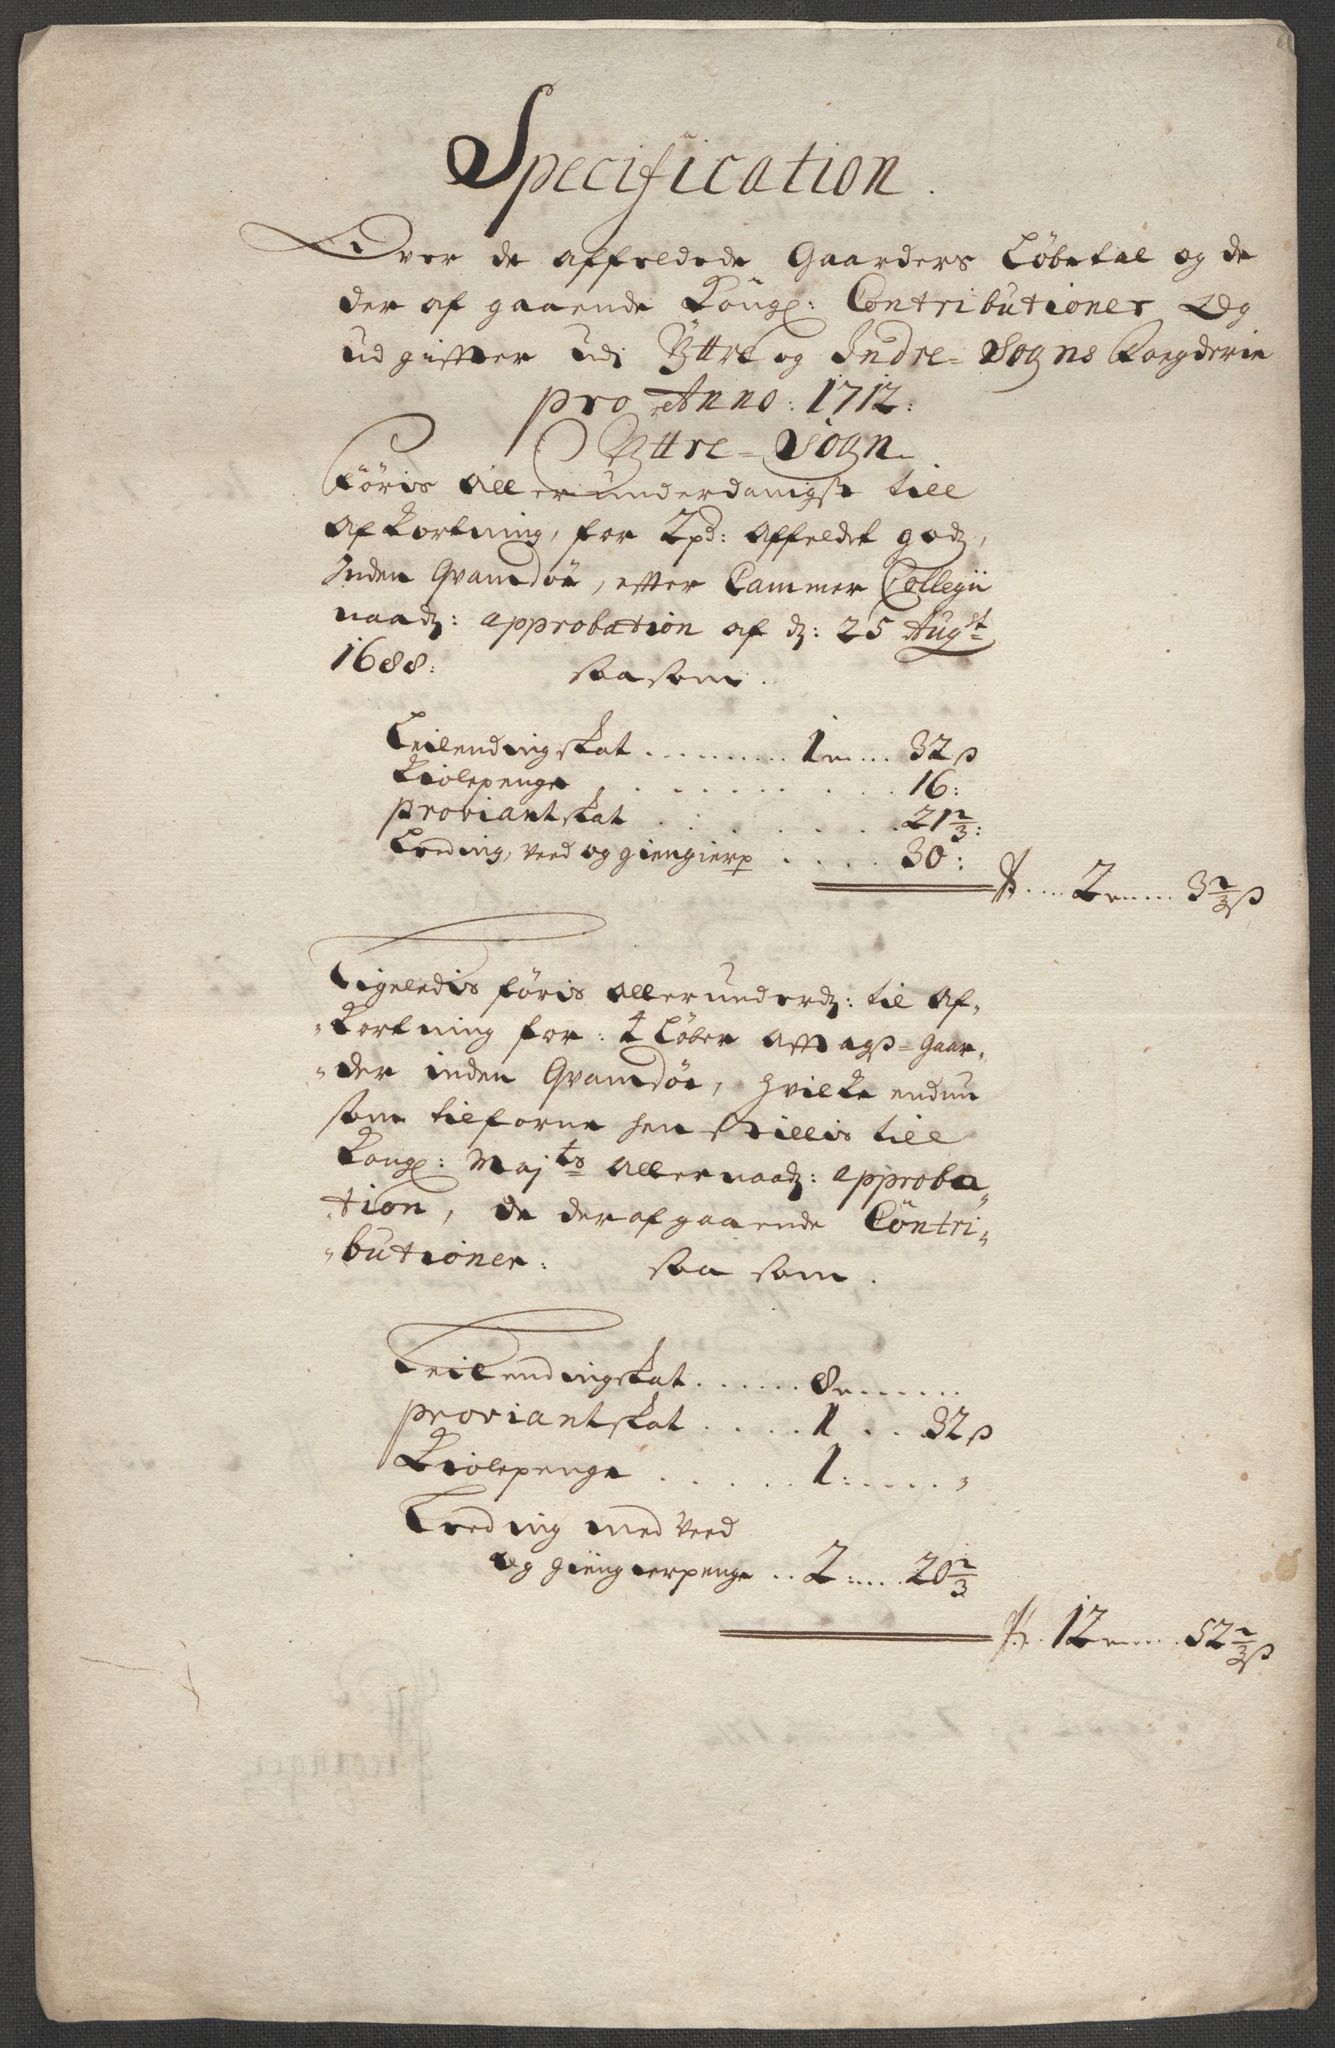 Specification.
Over de affeldede Gaarders Løbetal og de
der af gaaende Kongl: Contributioner Og
udgiffter udi Yttre og Indre-Sogns Fogderie
pro Anno: 1712:
Yttre-Sogn
Føris aller underdanigst till
afkortning, for 2 pd: affeldet godz,
Inden Qvamsøe, effter Cammer Collegii
naadg: approbation af dz: 25 Augst
1688: saasom.
Leilendingskat ......... 1 ... 32 ß
Kiølepenge ......... 16:
Proviantskat ......... 21 1/3:
Leeding, Veed og giengierp .... 30:
.... 2 ..... 3 1/3 ß
Ligeledis føris allerunderdz: til af-
-kortning for: 4 Løber afftags-gaar-
-der inden Qvamsøe, hvilke endnu
som tilforne henstillis till
Kongl: Majts allernaadg: approba-
-tion, de deraf gaaende Contri-
-butioner: saa som.
Leilendingskat ...... 8 ......
Proviantskat ..... 1 .. 32 ß
Kiølepenge ...... 1: .....
Leeding med Veed
og giengierpenge .. 2: .... 20 1/3
.. 12 ..... 52 1/3 ß